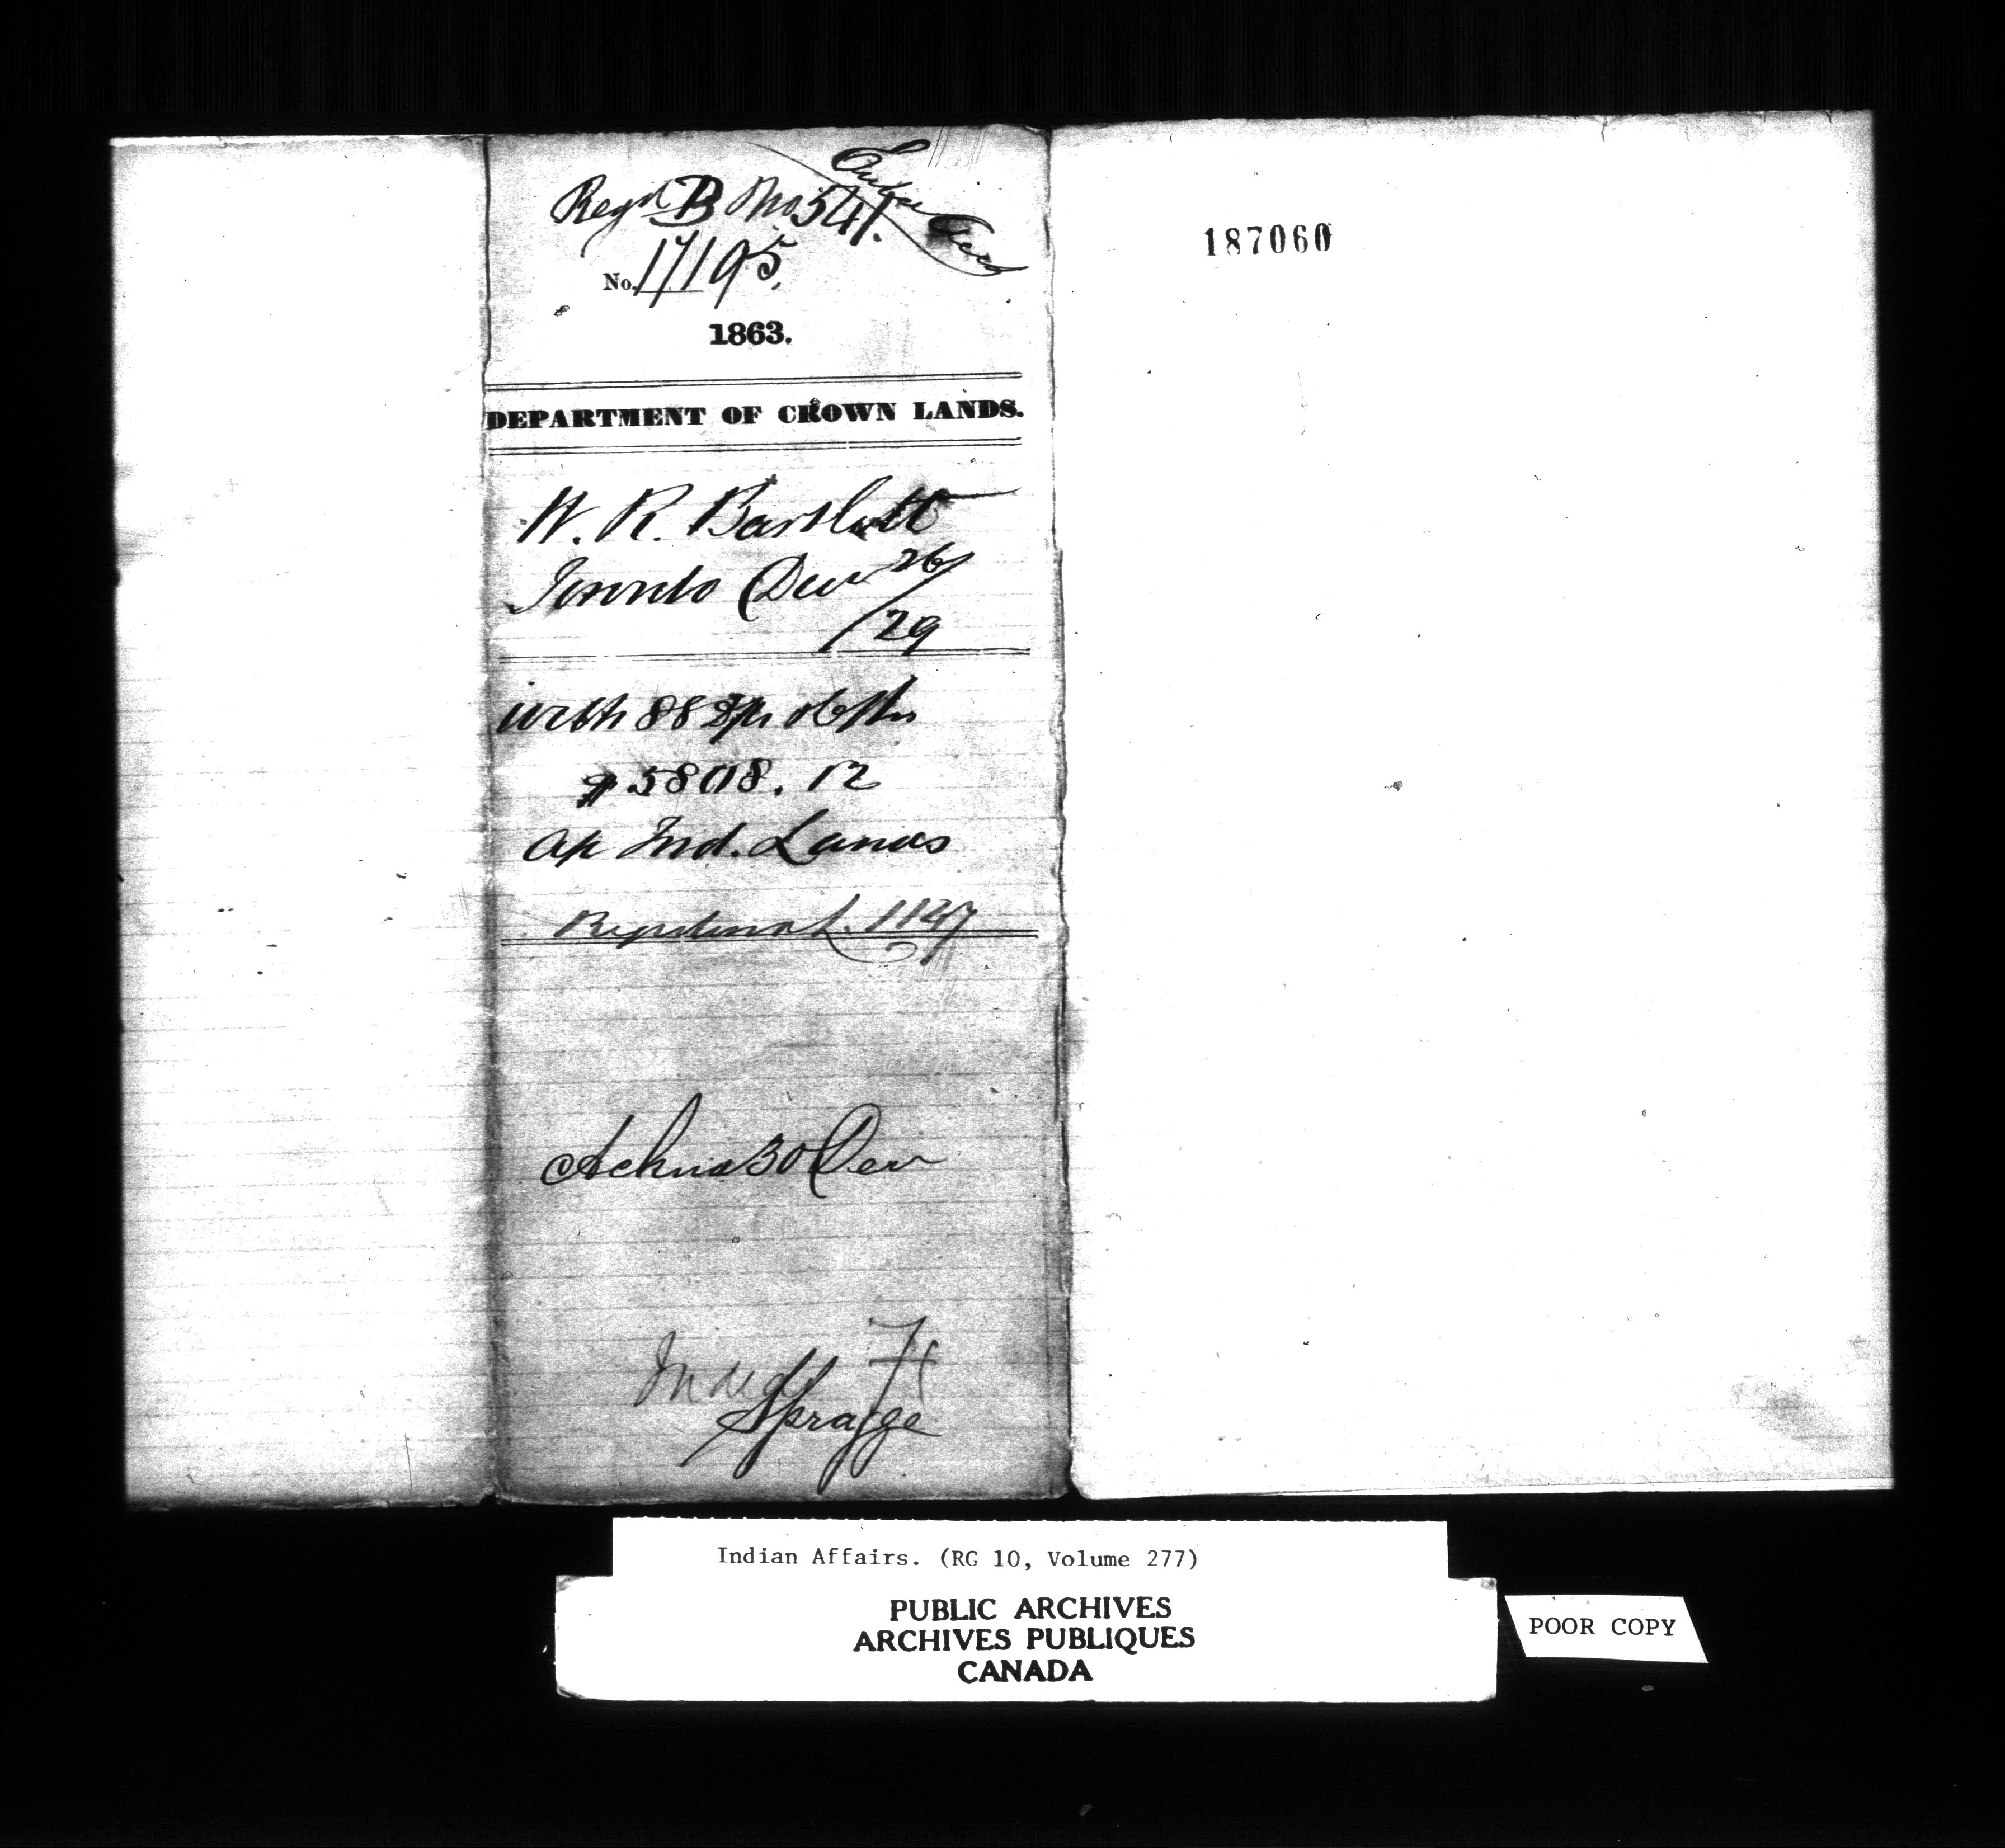 Regd B No 541.
No. 17195.
1863.
DEPARTMENT OF CROWN LANDS.
W. R. Bartlett
Toronto Decr 26/
/29
with 88
$5808.12
Ind. Lands
1147
Acknd 30 Decr
Spragge
187060
Indian Affairs. (RG 10, Volume 277)
PUBLIC ARCHIVES
ARCHIVES PUBLIQUES
CANADA
POOR COPY